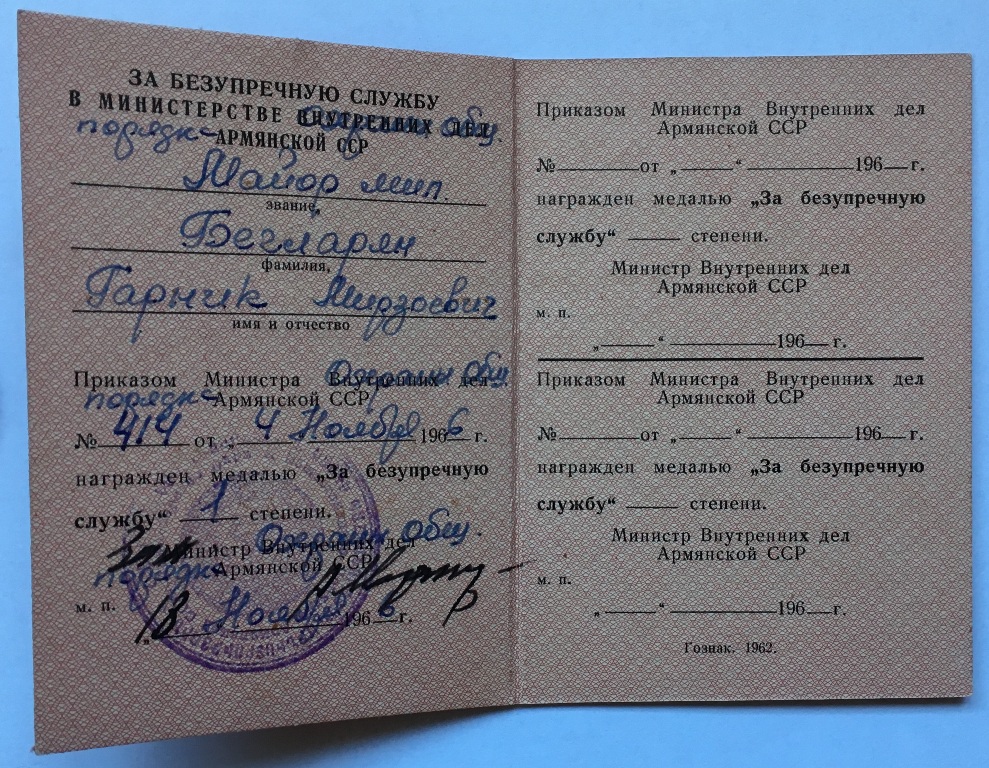 ЗА БЕЗУПРЕЧНУЮ СЛУЖБУ
В МИНИСТЕРСТВЕ ВНУТРЕННИХ ДЕЛ Охраны общ.
порядка АРМЯНСКОЙ ССР
Майор мил.
звание,
Бегларян
фамилия,
Гарник Мирзоевич
имя и отчество
Приказом Министра Внутренних дел Охраны общ.
порядка Армянской ССР
№ 414 от „ 4 Ноября 1966 г.
награжден медалью „За безупречную
службу“ 1 степени.
Зам. Министр Внутренних дел Охраны общ.
порядка Армянской ССР
м. п.
„18 Ноября 1966 г.
Приказом Министра Внутренних дел
Армянской ССР
№ от „ “ 196 г.
награжден медалью „За безупречную
службу“ степени.
Министр Внутренних дел
Армянской ССР
м. п.
„ “ 196 г.
Приказом Министра Внутренних дел
Армянской ССР
№ от „ “ 196 г.
награжден медалью „За безупречную
службу“ степени.
Министр Внутренних дел
Армянской ССР
м. п.
„ “ 196 г.
Гознак. 1962.